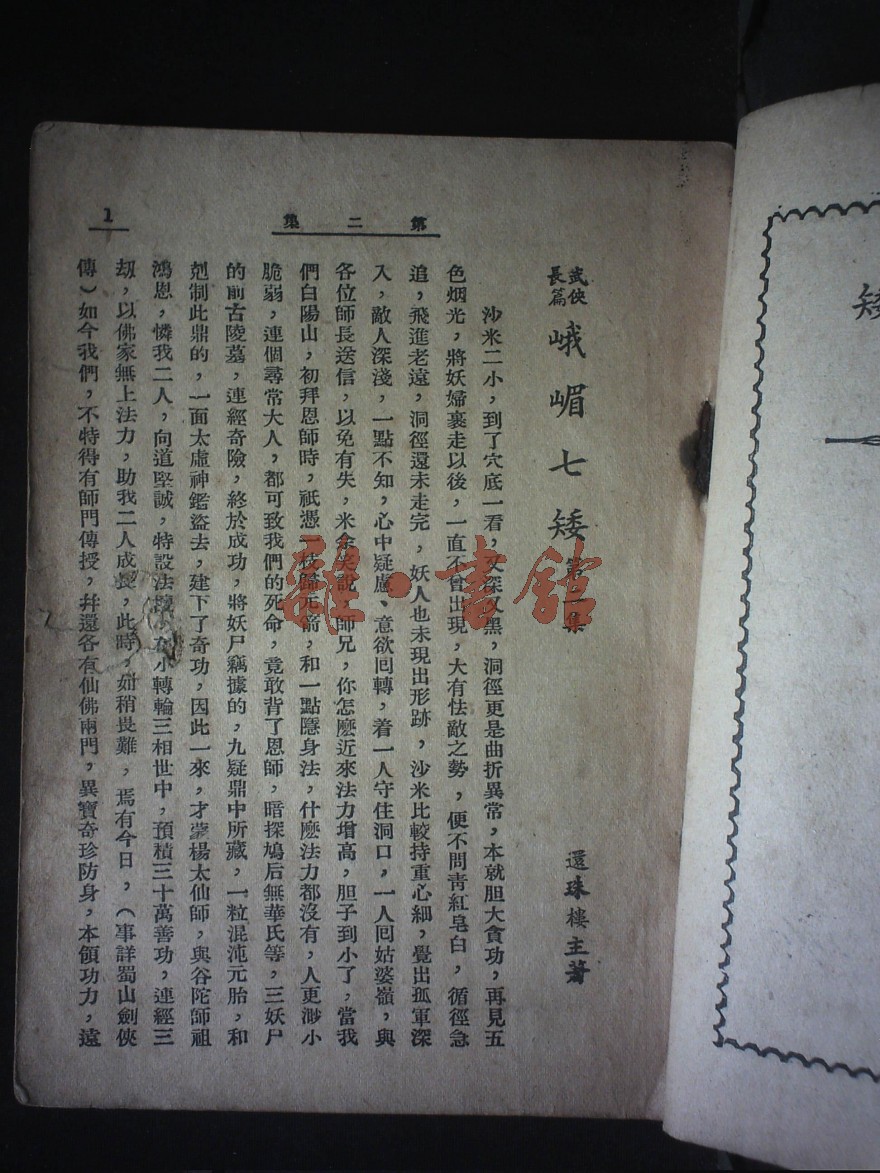 第二集
1
武俠長篇 峨嵋七矮 第二集
還珠樓主著
沙米二小，到了穴底一看，又深又黑，洞徑更是曲折異常，本就胆大貪功，再見五
色烟光，將妖婦裹走以後，一直不曾出現，大有怯敵之勢，便不問靑紅皂白，循徑急
追，飛進老遠，洞徑還未走完，妖人也未現出形跡，沙米比較持重心細，覺出孤軍深
入，敵人深淺，一點不知，心中疑慮、意欲回轉，着一人守住洞口，一人回姑婆嶺，與
各位師長送信，以免有失，米余笑說，師兄，你怎麽近來法力增高，胆子到小了，當我
們白陽山，初拜恩師時，祇憑一枝歸元箭，和一點隱身法，什麽法力都沒有，人更渺小
脆弱，連個尋常大人，都可致我們的死命，竟敢背了恩師，暗探鳩后無華氏等，三妖尸
的前古陵墓，連經奇險，終於成功，將妖尸竊據的，九疑鼎中所藏，一粒混沌元胎，和
剋制此鼎的，一面太虛神鑑盜去，建下了奇功，因此一來，才蒙楊太仙師，與谷陀師祖
鴻恩，憐我二人，向道堅誠，特設法壇，在小轉輪三相世中，預積三十萬善功，連經三
劫，以佛家無上法力，助我二人成長，此時，如稍畏難，焉有今日，（事詳蜀山劍俠
傳）如今我們，不特得有師門傳授，幷還各有仙佛兩門，異寶奇珍防身，本領功力，遠
矮
雜·書館